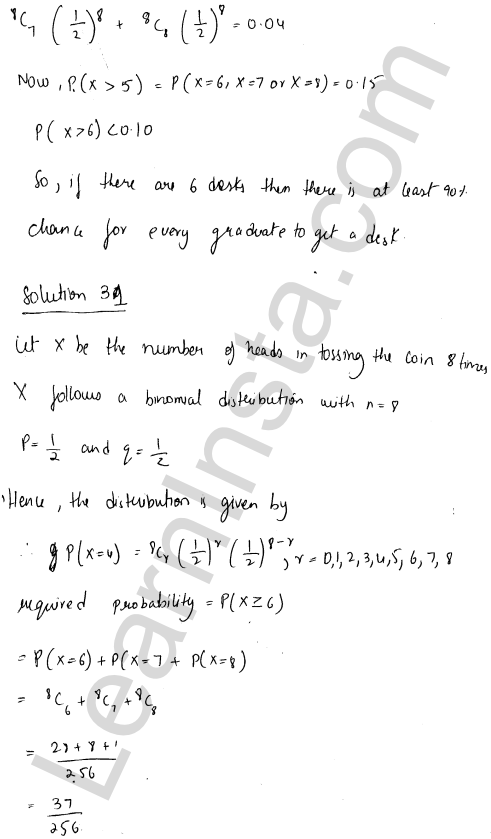 ⁸C₇ (1/2)⁸ + ⁸C₈ (1/2)⁸ = 0.04
Now, P.(X > 5) = P(X=6, X=7 or X=8) = 0.15
P( X>6) < 0.10
So, if there are 6 desks then there is at least 90%
chance for every graduate to get a desk.
Solution 31
Let X be the number of heads in tossing the coin 8 times
X follows a binomial distribution with n = 8
P = 1/2 and q = 1/2
Hence, the distribution is given by
∴ P(X=4) = ⁸Cᵣ (1/2)ʳ (1/2)⁸⁻ʳ, r = 0,1,2,3,4,5,6,7,8
required probability = P(X ≥ 6)
= P(X=6) + P(X=7 + P(X=8)
= ⁸C₆ + ⁸C₇ + ⁸C₈
= 28 + 8 + 1 / 256
= 37 / 256.
LearnInsta.com